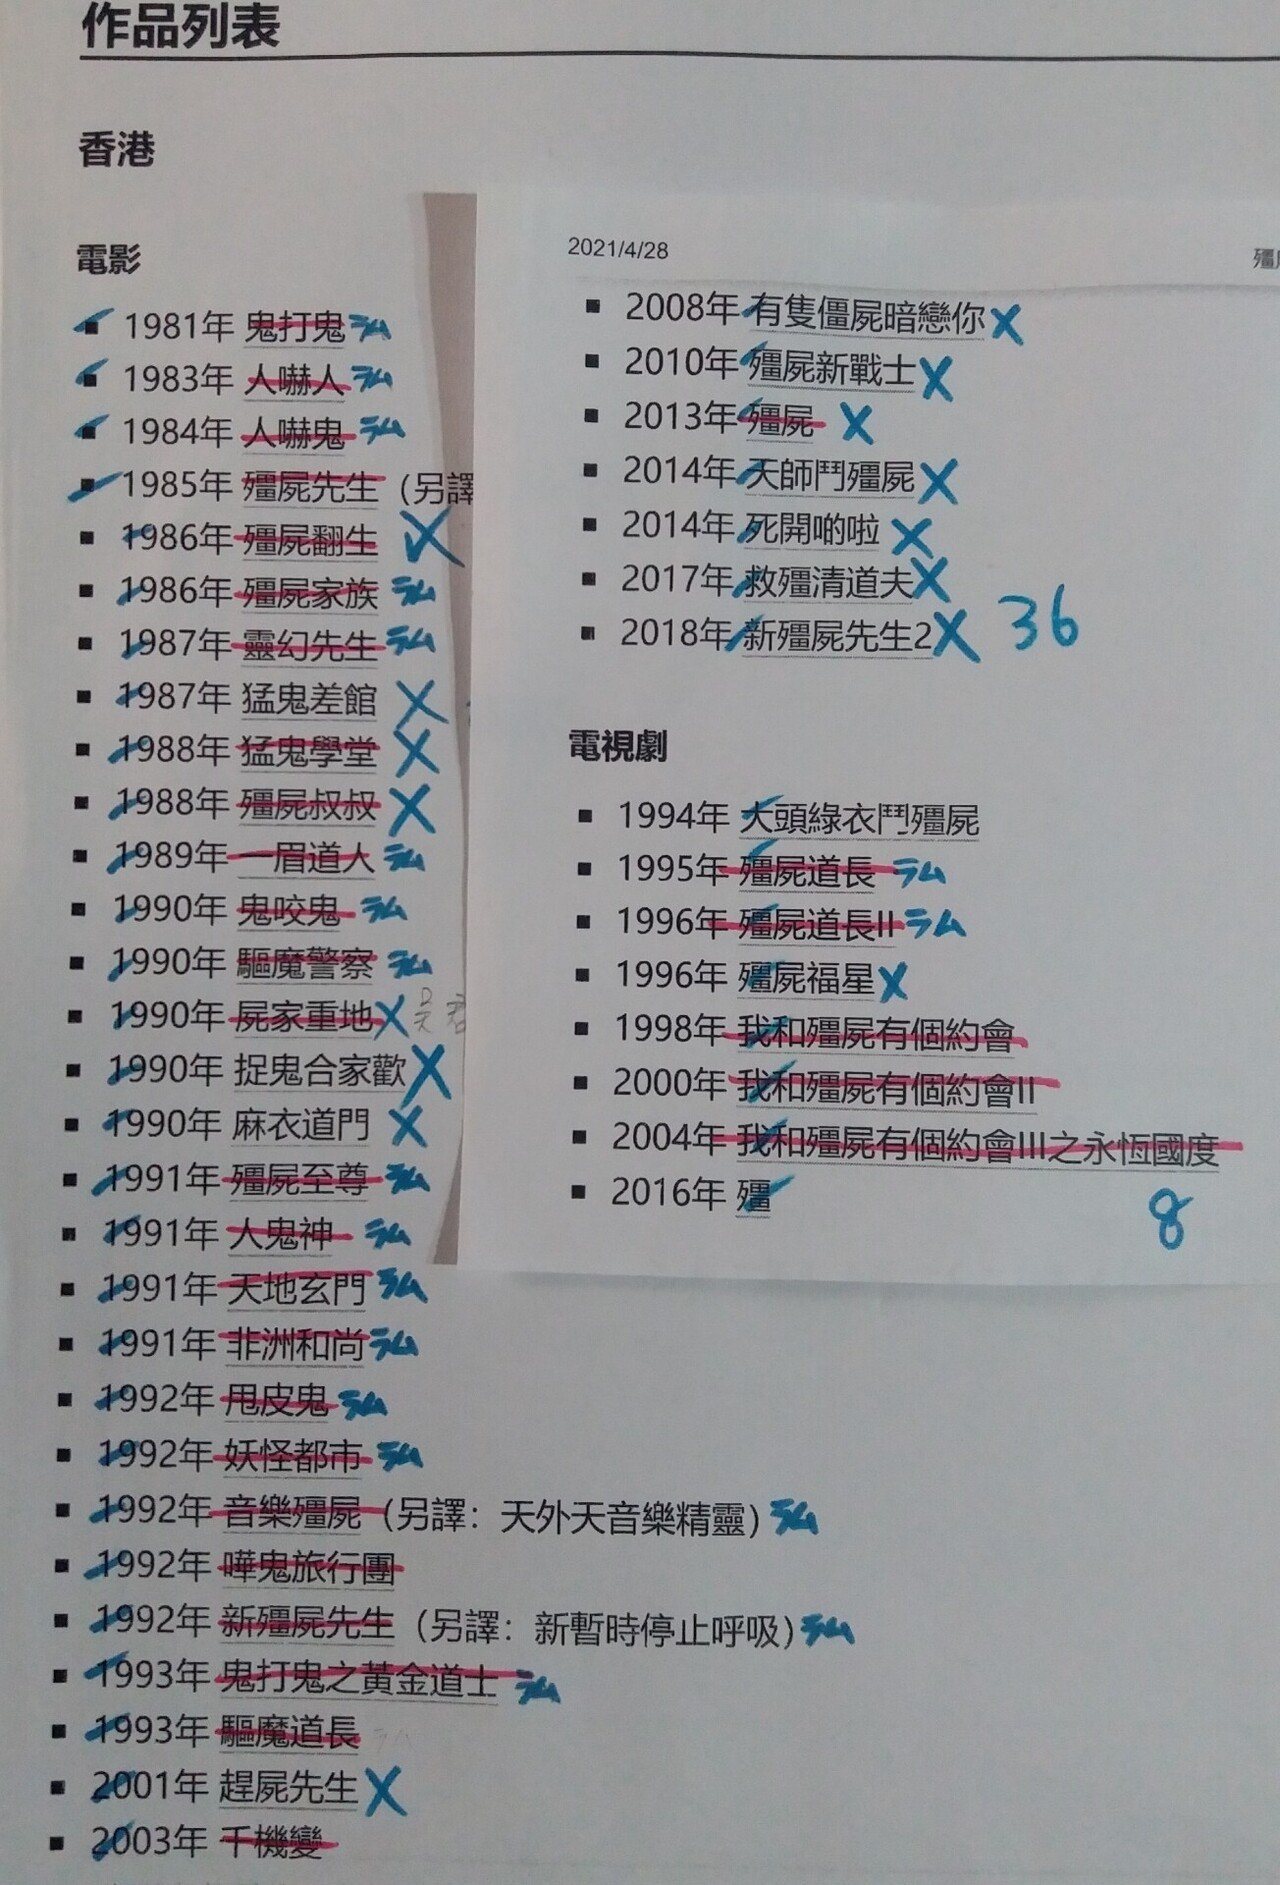 作品列表
香港
電影
1981年 鬼打鬼 ラム
1983年 人嚇人 ラム
1984年 人嚇鬼 ラム
1985年 殭屍先生（另譯
1986年 殭屍翻生 X
1986年 殭屍家族 ラム
1987年 靈幻先生 ラム
1987年 猛鬼差館 X
1988年 猛鬼學堂 X
1988年 殭屍叔叔 X
1989年 一眉道人 ラム
1990年 鬼咬鬼 ラム
1990年 驅魔警察 ラム
1990年 屍家重地 X
1990年 捉鬼合家歡 X
1990年 麻衣道門 X
1991年 殭屍至尊 ラム
1991年 人鬼神 ラム
1991年 天地玄門 ラム
1991年 非洲和尚 ラム
1992年 甩皮鬼 ラム
1992年 妖怪都市 ラム
1992年 音樂殭屍（另譯：天外天音樂精靈）ラム
1992年 嘩鬼旅行團
1992年 新殭屍先生（另譯：新暫時停止呼吸）ラム
1993年 鬼打鬼之黃金道士 ラム
1993年 驅魔道長 ラム
2001年 趕屍先生 X
2003年 千機變
2021/4/28
2008年 有隻僵屍暗戀你 X
2010年 殭屍新戰士 X
2013年 殭屍 X
2014年 天師鬥殭屍 X
2014年 死開啲啦 X
2017年 救殭清道夫 X
2018年 新殭屍先生2 X 36
電視劇
1994年 大頭綠衣鬥殭屍
1995年 殭屍道長 ラム
1996年 殭屍道長II ラム
1996年 殭屍福星 X
1998年 我和殭屍有個約會
2000年 我和殭屍有個約會II
2004年 我和殭屍有個約會III之永恆國度
2016年 殭
8